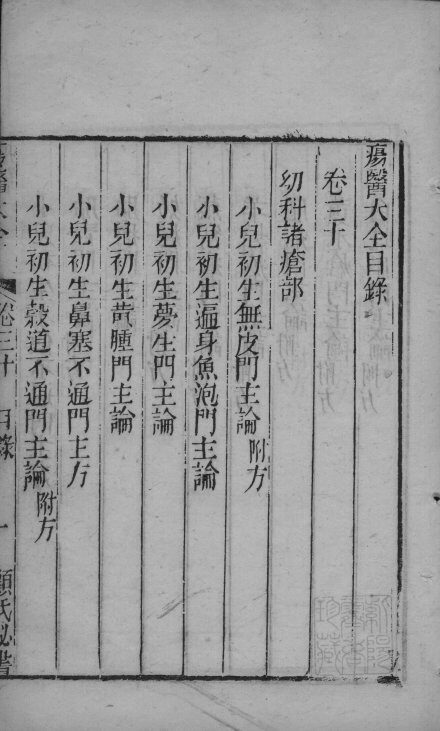 瘍醫大全目錄
卷三十
幼科諸瘡部
小兒初生無皮門主論附方
小兒初生遍身魚泡門主論
小兒初生夢生門主論
小兒初生黄腫門主論
小兒初生鼻塞不通門主方
小兒初生穀道不通門主論附方
瘍醫大全 卷三十 目錄 一 顧氏秘書